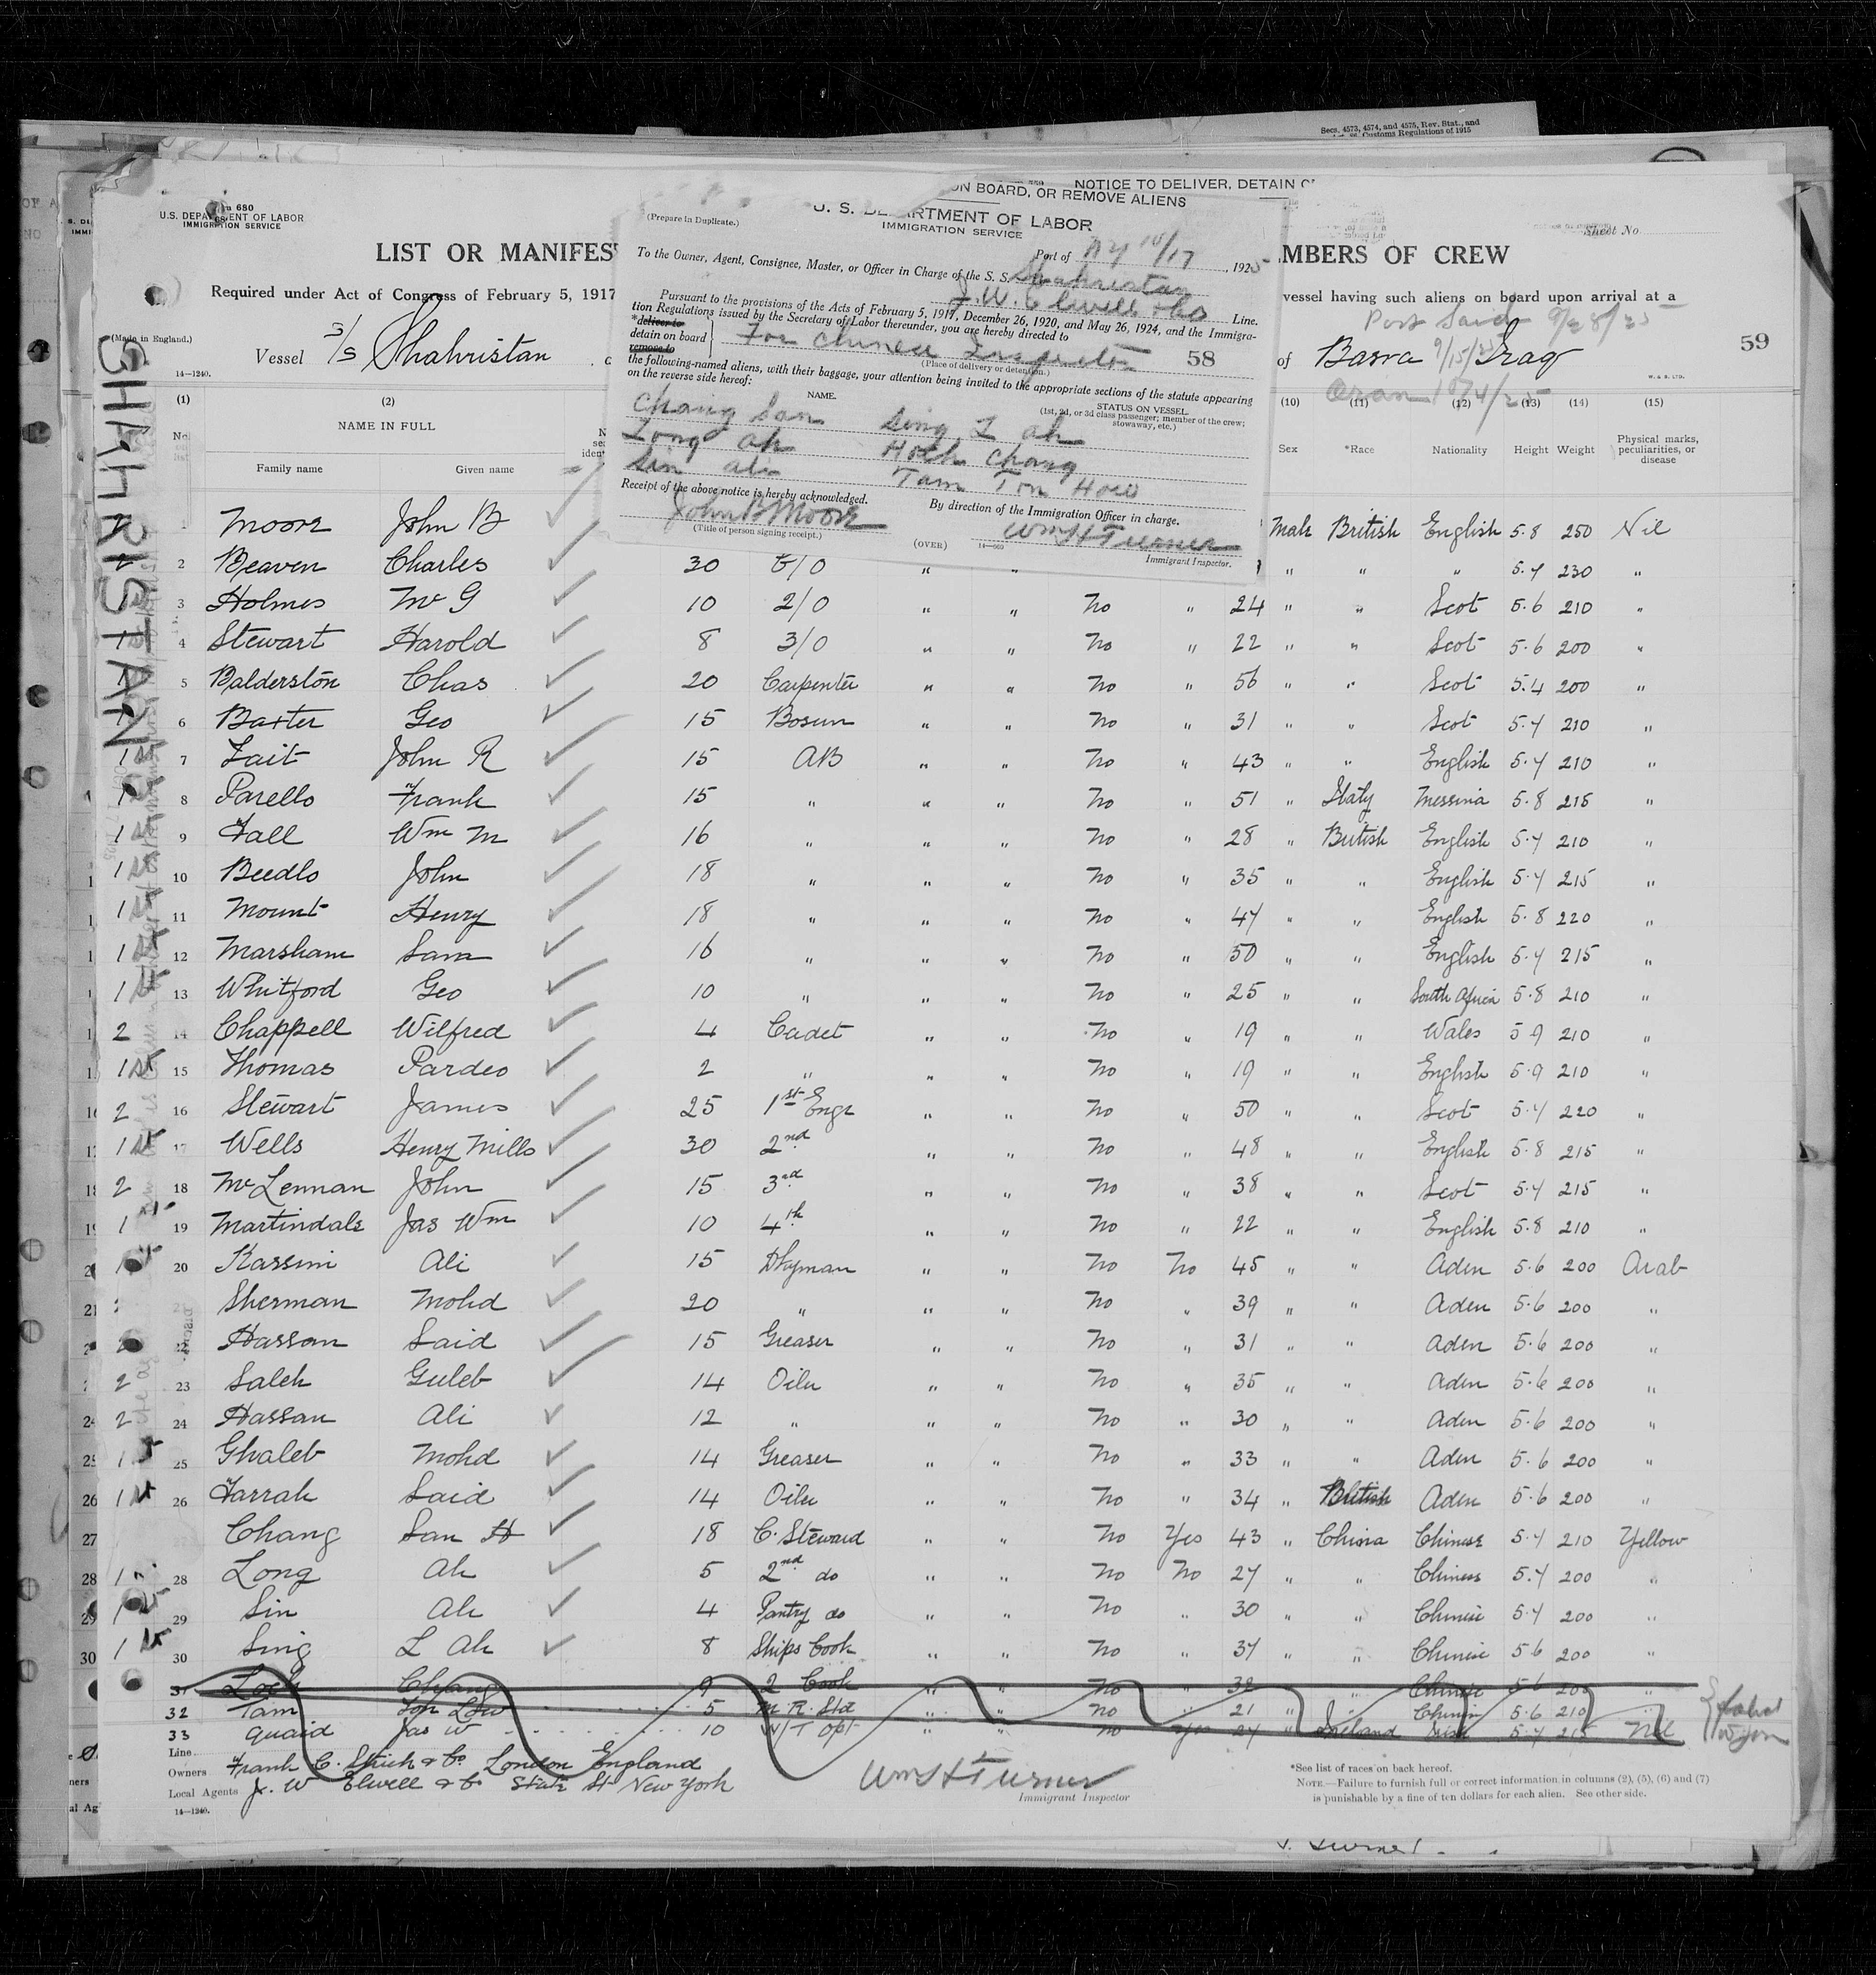 Secs. 4573, 4574, and 4575, Rev. Stat., and
Customs Regulations of 1915
680
U.S. DEPARTMENT OF LABOR
IMMIGRATION SERVICE
Sheet No.
LIST OR MANIFES
MBERS OF CREW
Required under Act of Congress of February 5, 1917
vessel having such aliens on board upon arrival at a
Port Said 9/28/25
(Made in England.)
Vessel S/S Shahristan
of Basra 9/15/25 Iraq
59
14-1240.
W. & S. LTD.
Oran 10/4/25
SHAHRISTAN
ON BOARD, OR REMOVE ALIENS
NOTICE TO DELIVER, DETAIN O
(Prepare in Duplicate.)
U. S. DEPARTMENT OF LABOR
IMMIGRATION SERVICE
Port of NY 10/17, 1925
To the Owner, Agent, Consignee, Master, or Officer in Charge of the S. S. Shahristan
J. W. Elwell & Co Line.
Pursuant to the provisions of the Acts of February 5, 1917, December 26, 1920, and May 26, 1924, and the Immigra-
tion Regulations issued by the Secretary of Labor thereunder, you are hereby directed to
*deliver to
detain on board
remove to
For Chinese Inspector
58
(Place of delivery or detention.)
the following-named aliens, with their baggage, your attention being invited to the appropriate sections of the statute appearing
on the reverse side hereof:
NAME.
STATUS ON VESSEL
(1st, 2d, or 3d class passenger; member of the crew; stowaway, etc.)
Chang San Sing L ah
Long ah Hoek Chang
Sin ah Tam Ton How
Receipt of the above notice is hereby acknowledged.
By direction of the Immigration Officer in charge.
John B Moore
Wm H Turner
(Title of person signing receipt.)
(OVER)
14-669
Immigrant Inspector.
(1) (2) (10) (11) (12) (13) (14) (15)
No.
NAME IN FULL
Family name Given name
Sex *Race Nationality Height Weight Physical marks, peculiarities, or disease
1 Moore John B Male British English 5.8 250 Nil
2 Beaven Charles 30 C/O " " " " " 5.7 230 "
3 Holmes Mc G 10 2/0 " " No " 24 " " Scot 5.6 210 "
4 Stewart Harold 8 3/0 " " No " 22 " " Scot 5.6 200 "
5 Balderston Chas 20 Carpenter " " No " 56 " " Scot 5.4 200 "
6 Baxter Geo 15 Bosun " " No " 31 " " Scot 5.7 210 "
7 Tait John R 15 AB " " No " 43 " " English 5.7 210 "
8 Parello Frank 15 " " " No " 51 " Italy Messina 5.8 215 "
9 Fall Wm M 16 " " " No " 28 " British English 5.7 210 "
10 Beedlo John 18 " " " No " 35 " " English 5.7 215 "
11 Mount Henry 18 " " " No " 47 " " English 5.8 220 "
12 Marsham Sam 16 " " " No " 50 " " English 5.7 215 "
13 Whitford Geo 10 " " " No " 25 " " South Africa 5.8 210 "
2 14 Chappell Wilfred 4 Cadet " " No " 19 " " Wales 5 9 210 "
15 Thomas Pardeo 2 " " " No " 19 " " English 5.9 210 "
2 16 Stewart James 25 1st Engr " " No " 50 " " Scot 5.7 220 "
17 Wells Henry Mills 30 2nd " " No " 48 " " English 5.8 215 "
2 18 McLennan John 15 3rd " " No " 38 " " Scot 5.7 215 "
1 19 Martindale Jas Wm 10 4th " " No " 22 " " English 5.8 210 "
20 Kassim Ali 15 Dkyman " " No No 45 " " Aden 5.6 200 Arab
21 Sherman Mohd 20 " " " No " 39 " " Aden 5.6 200 "
22 Hassan Said 15 Greaser " " No " 31 " " Aden 5.6 200 "
2 23 Saleh Guleb 14 Oiler " " No " 35 " " Aden 5.6 200 "
2 24 Hassan Ali 12 " " " No " 30 " " Aden 5.6 200 "
25 Ghaleb Mohd 14 Greaser " " No " 33 " " Aden 5.6 200 "
26 Farrah Said 14 Oiler " " No " 34 " British Aden 5.6 200 "
27 Chang San H 18 C. Steward " " No Yes 43 " China Chinese 5.7 210 Yellow
28 Long Ah 5 2nd do " " No No 27 " " Chinese 5.7 200 "
29 Sin Ah 4 Pantry do " " No " 30 " " Chinese 5.7 200 "
30 Sing L Ah 8 Ships Cook " " No " 37 " " Chinese 5 6 200 "
31 Chang 9 2 Cook " " No " 32 " Chinese 5 6 200 "
32 Tam 5 M. R. Std " " No " 21 " " Chinese 5.6 210 "
33 Quaid Jas W 10 W/T Opt " " No Yes 27 " Ireland Irish 5.7 215 Nil
Line
Owners Frank C. Strick & Co. London England
Local Agents J. W Elwell & Co State St New York
14-1240.
Wm H Turner
Immigrant Inspector
*See list of races on back hereof.
NOTE.—Failure to furnish full or correct information in columns (2), (5), (6) and (7)
is punishable by a fine of ten dollars for each alien. See other side.